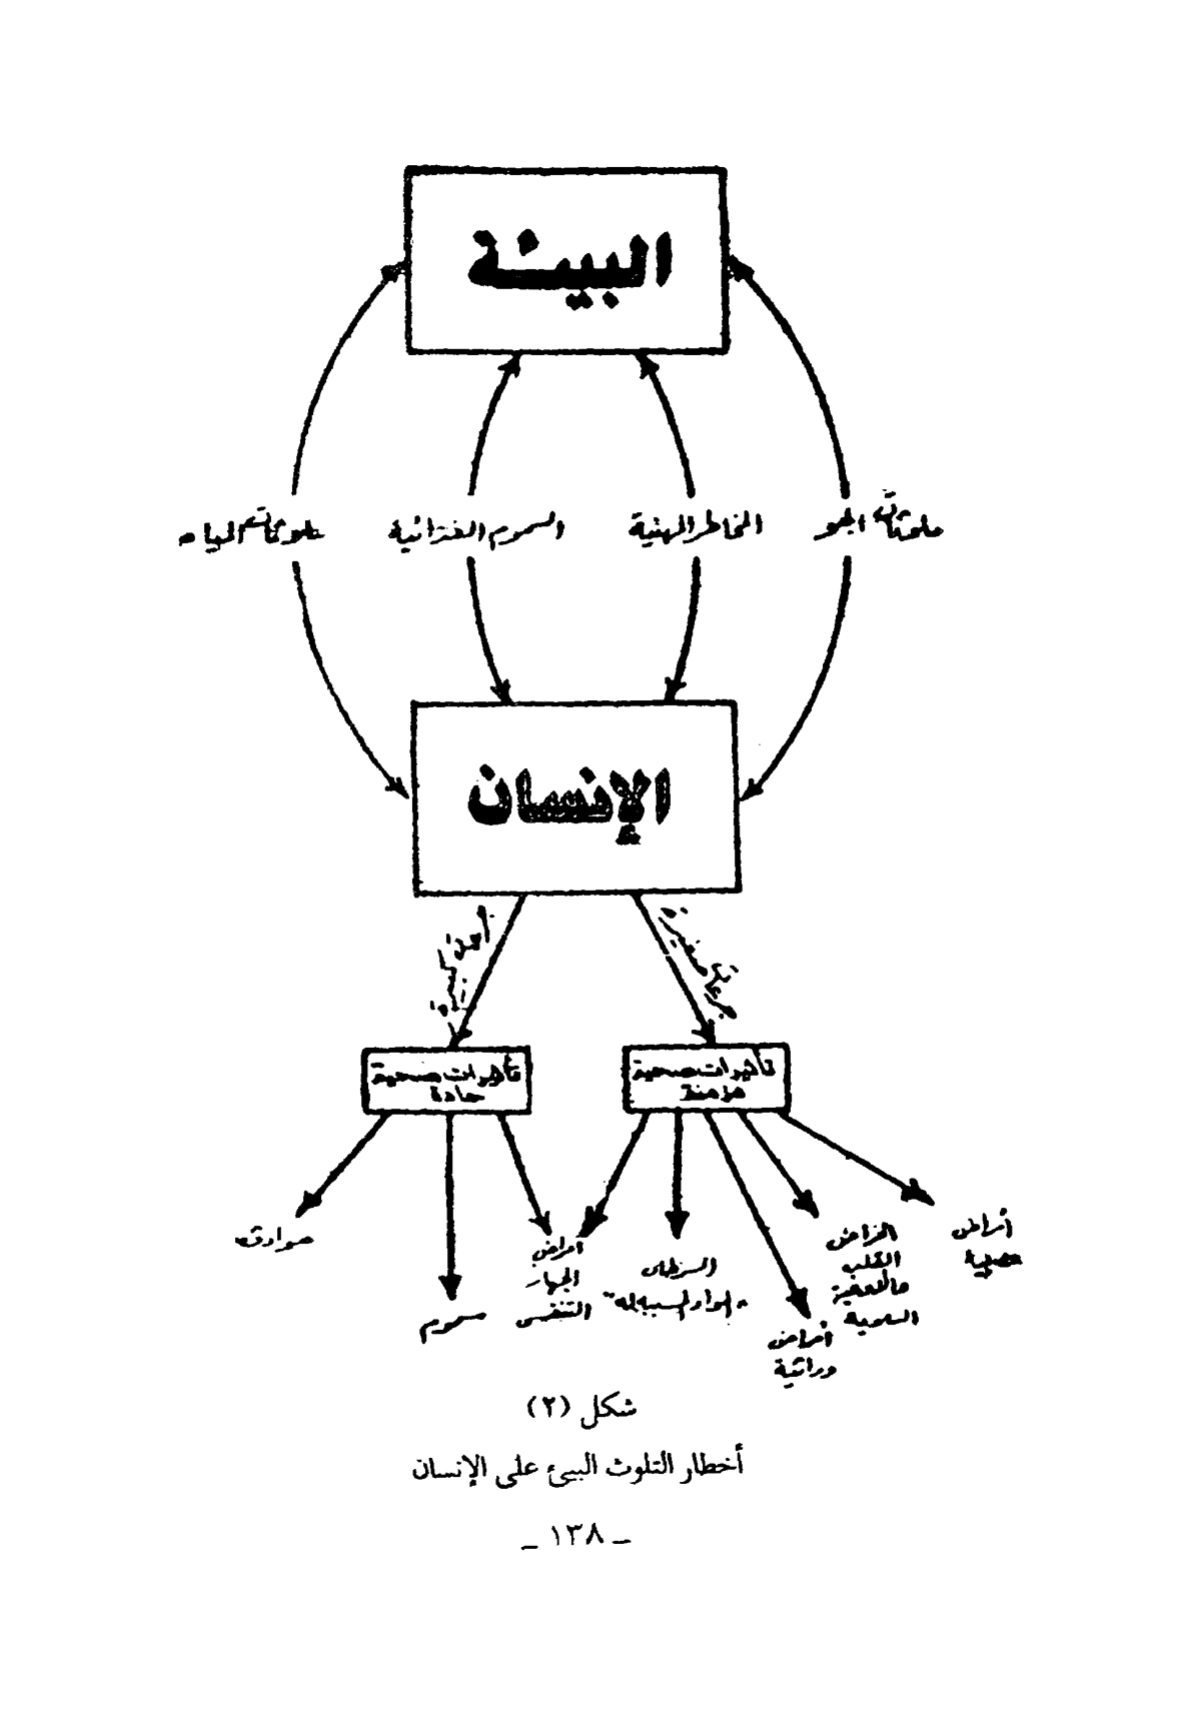 البيئة
ملوثات الجو
المخاطر المهنية
السموم الغذائية
ملوثات المياه
الإنسان
جرعات صغيرة
كبيرة
تأثيرات صحية
مزمنة
تأثيرات صحية
حادة
أمراض
عصبية
امراض
القلب
والأوعية
الدموية
أمراض
وراثية
السرطان
"المواد المسببه له"
امراض
الجهاز
التنفسى
سموم
حوادث
شكل (٢)
أخطار التلوث البيئ على الإنسان
ـ ١٣٨ ـ